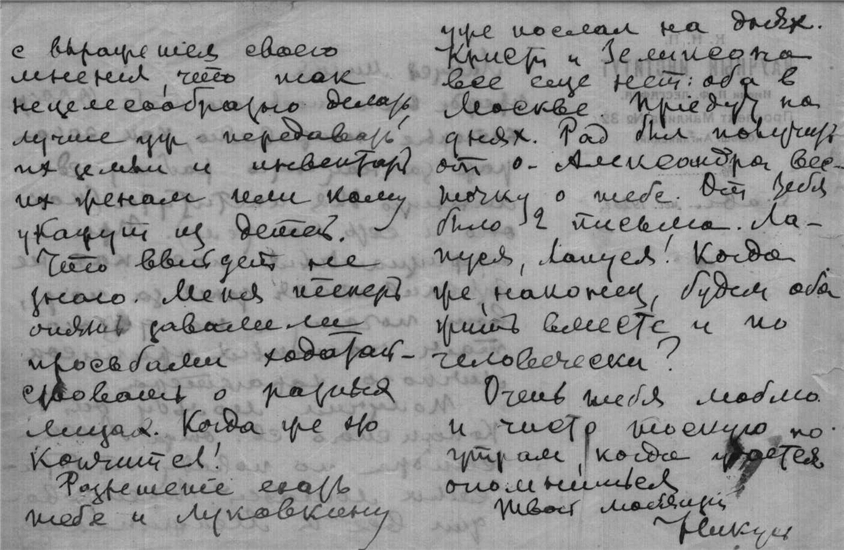 с выражением своего
мнения, что так
нецелесообразно делать
лучше уж передавать
их семьи и инвентарь
их женам или кому
укажут из детей.
Что выйдет не
знаю. Меня теперь
опять завалили
просьбами ходатай-
ствовать о разных
лицах. Когда же это
кончится!
Разрешение ехать
тебе и Луковкину
уже послал на днях.
Кристи и
все еще нет: оба в
Москве. Приедут на
днях. Рад был получить
от о. Александра вес-
точку о тебе. От тебя
было 2 письма. Ла-
пуся, Лапуся! Когда
же, наконец, будем оба
жить вместе и по
человечески?
Очень тебя люблю
и часто тоскую по
утрам, когда удается
опомниться
Твой